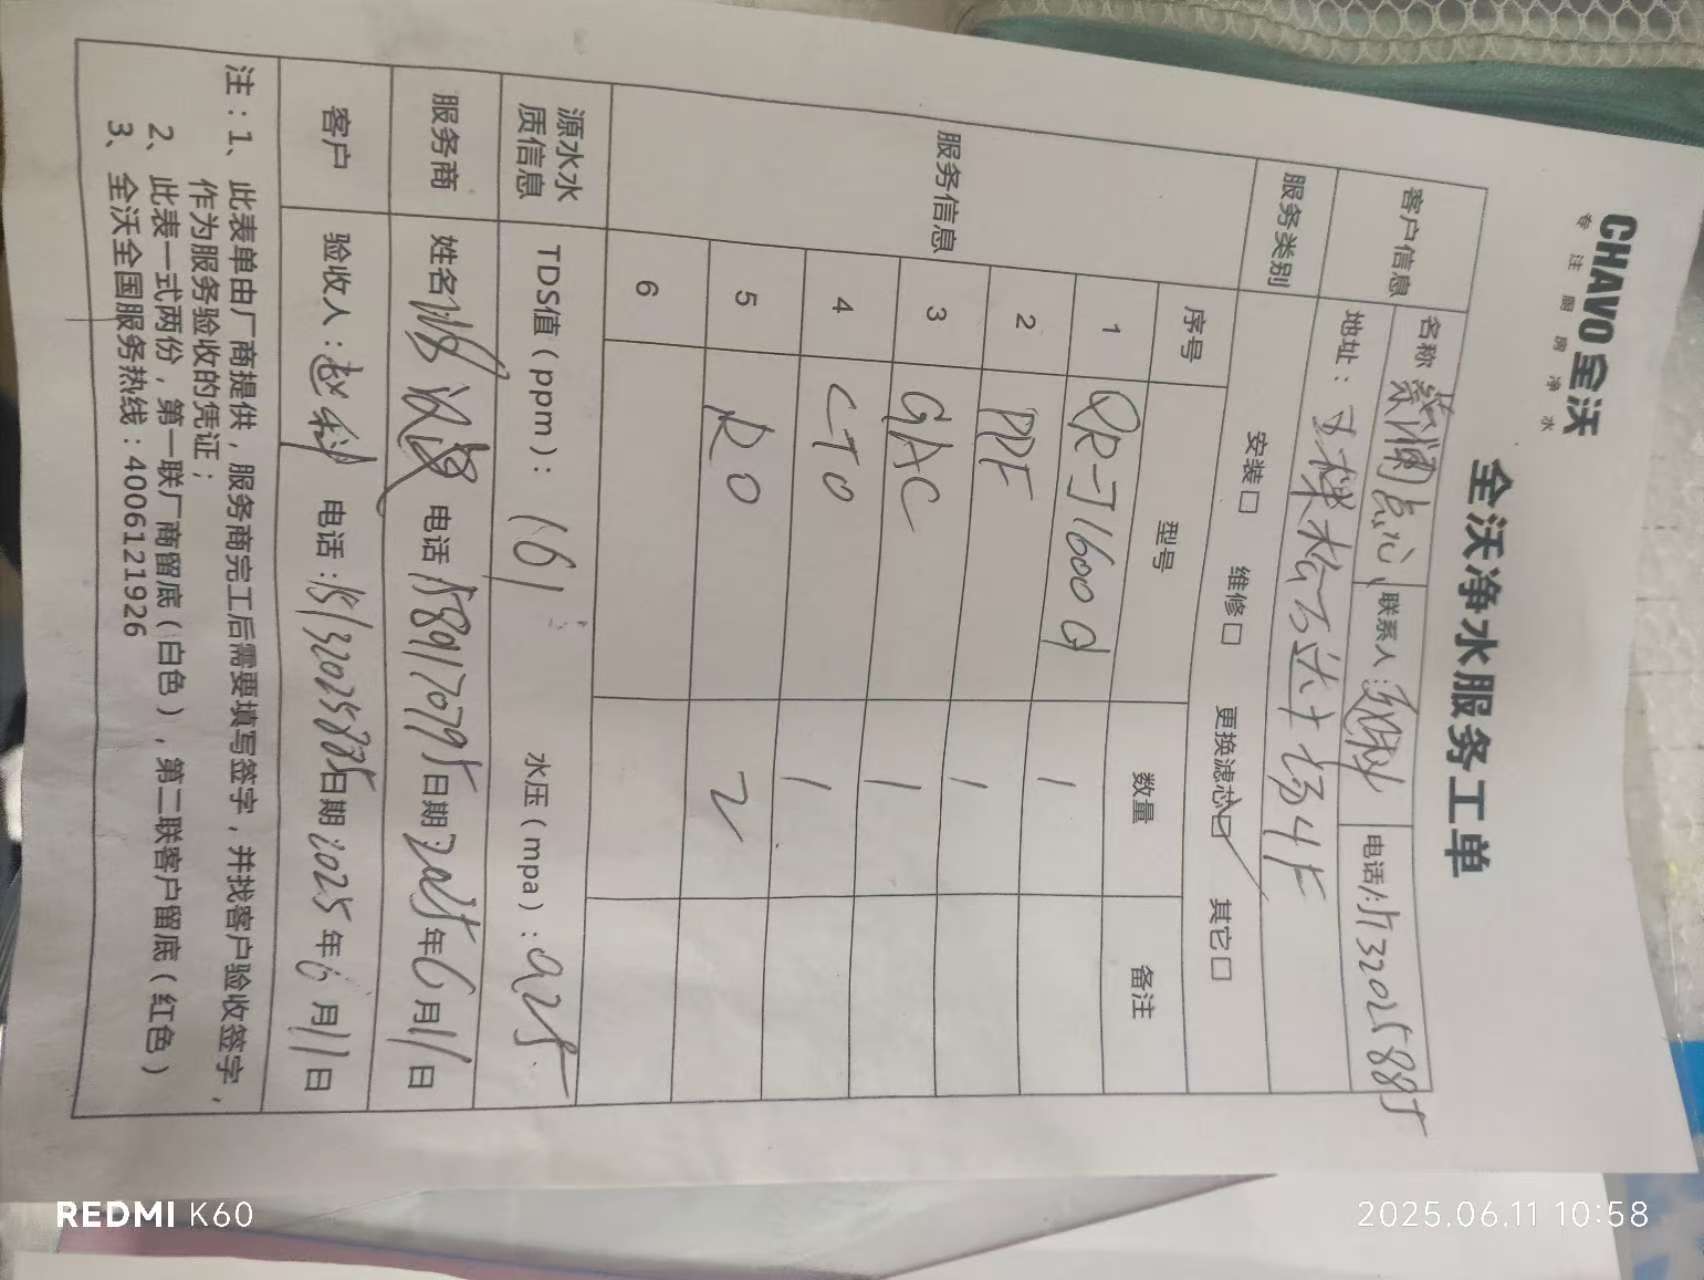 CHAVO全沃
专注厨房净水
全沃净水服务工单
客户信息 名称 紫澜点心 联系人: 赵科 电话: 15132025885
地址: 万达广场4F
服务类别 安装□ 维修□ 更换滤芯☑ 其它□
服务信息 序号 型号 数量 备注
1 QR-J1600G 1
2 PPF 1
3 GAC 1
4 CTO 1
5 RO 2
6
源水水质信息 TDS值(ppm): 161 水压(mpa): 0.25
服务商 姓名 电话 15891707795 日期 2025年6月11日
客户 验收人: 赵科 电话: 15132025885 日期: 2025年6月11日
注:1、此表单由厂商提供,服务商完工后需要填写签字,并找客户验收签字,
作为服务验收的凭证;
2、此表一式两份,第一联厂商留底(白色),第二联客户留底(红色)
3、全沃全国服务热线:4006121926
REDMI K60
2025.06.11 10:58